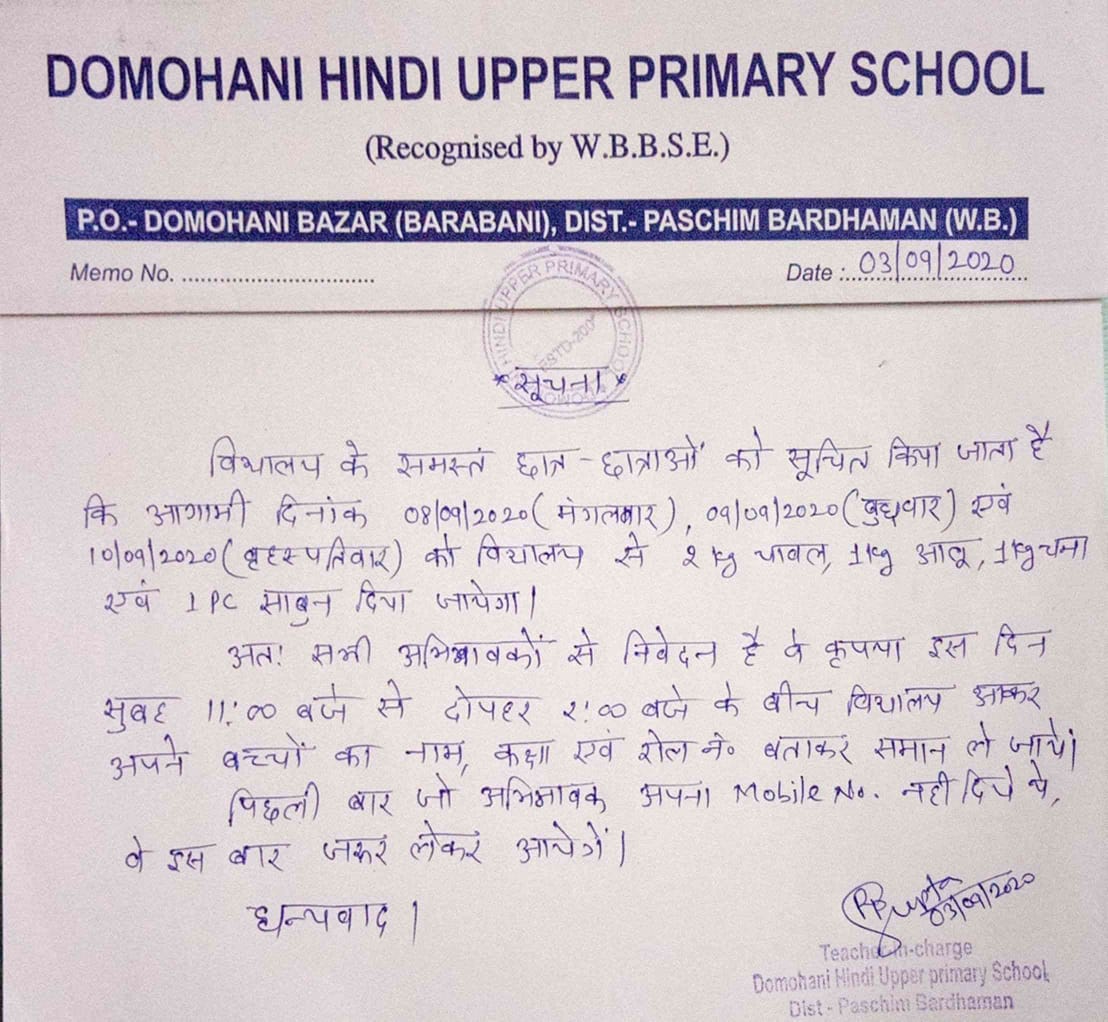 DOMOHANI HINDI UPPER PRIMARY SCHOOL
(Recognised by W.B.B.S.E.)
P.O.- DOMOHANI BAZAR (BARABANI), DIST.- PASCHIM BARDHAMAN (W.B.)
Memo No. ................................ Date : 03/09/2020
HINDI UPPER PRIMARY SCHOOL
ESTD-200
* सूचना *
विद्यालय के समस्त छात्र - छात्राओं को सूचित किया जाता है
कि आगामी दिनांक 08/09/2020 (मंगलवार), 09/09/2020 (बुधवार) एवं
10/09/2020 (बृहस्पतिवार) को विद्यालय से 2 kg चावल, 1 kg आलू, 1 kg चना
एवं 1 PC साबुन दिया जायेगा।
अतः सभी अभिभावकों से निवेदन है वे कृपया इस दिन
सुबह 11:00 बजे से दोपहर 2:00 बजे के बीच विद्यालय आकर
अपने बच्चों का नाम, कक्षा एवं रोल नं० बताकर समान ले जाये।
पिछली बार जो अभिभावक अपना Mobile No. नही दिये थे,
वे इस बार जरूर लेकर आयेगें।
धन्यवाद।
RP Gupta
03/09/2020
Teacher-in-charge
Domohani Hindi Upper primary School
Dist - Paschim Bardhaman